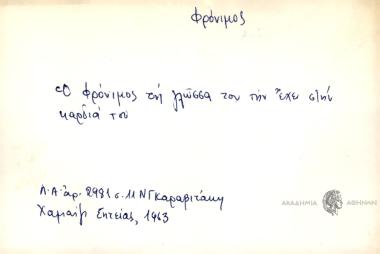 φρόνιμος
Ὁ φρόνιμος τὴ γλῶσσα του τὴν ἔχει στὴν
καρδιά του
Λ.Α. ἀρ. 2981 σ. 11 Ν Γ Καραβιτάκη
Σητείας, 1963
ΑΚΑΔΗΜΙΑ ΑΘΗΝΩΝ